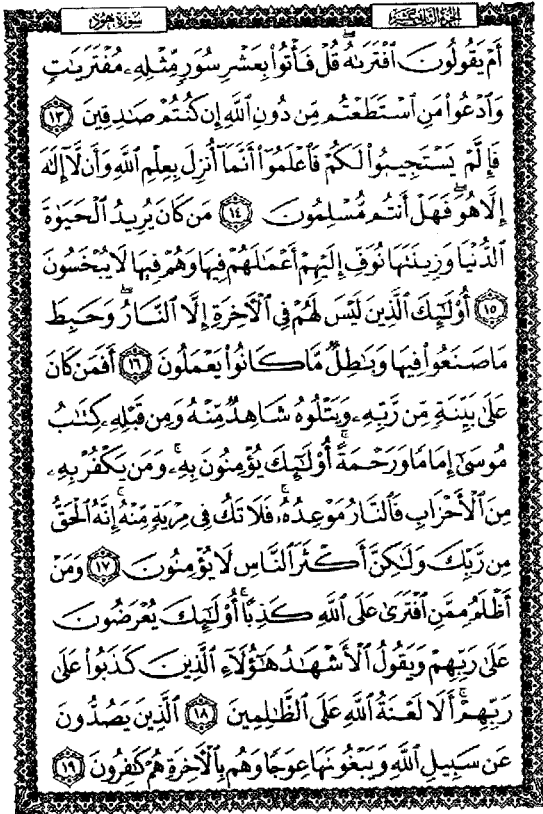 سُورَةُ هُودٍ
الجزء الثاني عشر
أَمْ يَقُولُونَ ٱفْتَرَىٰهُ ۖ قُلْ فَأْتُوا۟ بِعَشْرِ سُوَرٍ مِّثْلِهِۦ مُفْتَرَيَٰتٍ
وَٱدْعُوا۟ مَنِ ٱسْتَطَعْتُم مِّن دُونِ ٱللَّهِ إِن كُنتُمْ صَٰدِقِينَ ١٣
فَإِلَّمْ يَسْتَجِيبُوا۟ لَكُمْ فَٱعْلَمُوٓا۟ أَنَّمَآ أُنزِلَ بِعِلْمِ ٱللَّهِ وَأَن لَّآ إِلَٰهَ
إِلَّا هُوَ ۖ فَهَلْ أَنتُم مُّسْلِمُونَ ١٤ مَن كَانَ يُرِيدُ ٱلْحَيَوٰةَ
ٱلدُّنْيَا وَزِينَتَهَا نُوَفِّ إِلَيْهِمْ أَعْمَٰلَهُمْ فِيهَا وَهُمْ فِيهَا لَا يُبْخَسُونَ
١٥ أُو۟لَٰٓئِكَ ٱلَّذِينَ لَيْسَ لَهُمْ فِى ٱلْءَاخِرَةِ إِلَّا ٱلنَّارُ ۖ وَحَبِطَ
مَا صَنَعُوا۟ فِيهَا وَبَٰطِلٌ مَّا كَانُوا۟ يَعْمَلُونَ ١٦ أَفَمَن كَانَ
عَلَىٰ بَيِّنَةٍ مِّن رَّبِّهِۦ وَيَتْلُوهُ شَاهِدٌ مِّنْهُ وَمِن قَبْلِهِۦ كِتَٰبُ
مُوسَىٰٓ إِمَامًا وَرَحْمَةً ۚ أُو۟لَٰٓئِكَ يُؤْمِنُونَ بِهِۦ ۚ وَمَن يَكْفُرْ بِهِۦ
مِنَ ٱلْأَحْزَابِ فَٱلنَّارُ مَوْعِدُهُۥ ۚ فَلَا تَكُ فِى مِرْيَةٍ مِّنْهُ ۚ إِنَّهُ ٱلْحَقُّ
مِن رَّبِّكَ وَلَٰكِنَّ أَكْثَرَ ٱلنَّاسِ لَا يُؤْمِنُونَ ١٧ وَمَنْ
أَظْلَمُ مِمَّنِ ٱفْتَرَىٰ عَلَى ٱللَّهِ كَذِبًا ۚ أُو۟لَٰٓئِكَ يُعْرَضُونَ
عَلَىٰ رَبِّهِمْ وَيَقُولُ ٱلْأَشْهَٰدُ هَٰٓؤُلَآءِ ٱلَّذِينَ كَذَبُوا۟ عَلَىٰ
رَبِّهِمْ ۚ أَلَا لَعْنَةُ ٱللَّهِ عَلَى ٱلظَّٰلِمِينَ ١٨ ٱلَّذِينَ يَصُدُّونَ
عَن سَبِيلِ ٱللَّهِ وَيَبْغُونَهَا عِوَجًا وَهُم بِٱلْءَاخِرَةِ هُمْ كَٰفِرُونَ ١٩